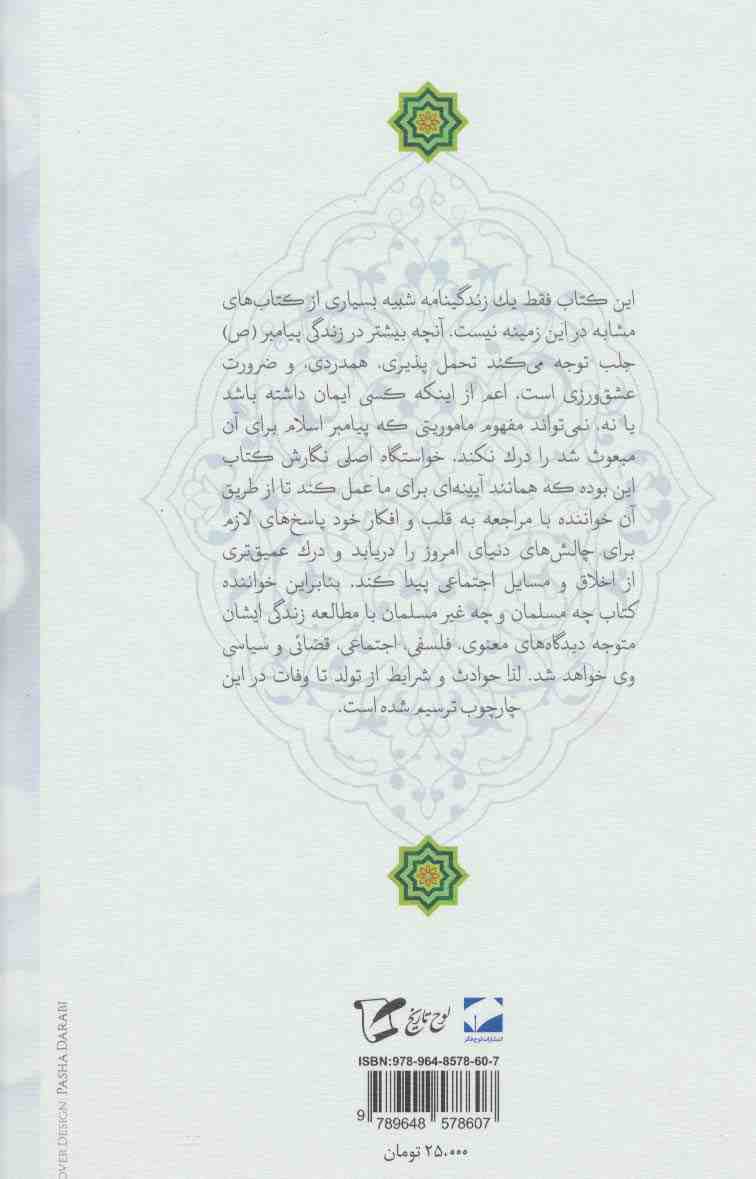 این کتاب فقط یک زندگینامه شبیه بسیاری از کتاب‌های
مشابه در این زمینه نیست. آنچه بیشتر در زندگی پیامبر (ص)
جلب توجه می‌کند تحمل پذیری، همدردی، و ضرورت
عشق‌ورزی است. اعم از اینکه کسی ایمان داشته باشد
یا نه، نمی‌تواند مفهوم ماموریتی که پیامبر اسلام برای آن
مبعوث شد را درك نکند. خواستگاه اصلی نگارش کتاب
این بوده که همانند آیینه‌ای برای ما عمل کند تا از طریق
آن خواننده با مراجعه به قلب و افکار خود پاسخ‌های لازم
برای چالش‌های دنیای امروز را دریابد و درك عمیق‌تری
از اخلاق و مسایل اجتماعی پیدا کند. بنابراین خواننده
کتاب چه مسلمان و چه غیر مسلمان با مطالعه زندگی ایشان
متوجه دیدگاه‌های معنوی، فلسفی، اجتماعی، قضائی و سیاسی
وی خواهد شد. لذا حوادث و شرایط از تولد تا وفات در این
چارچوب ترسیم شده است.
لوح تاریخ
انتشارات لوح فکر
ISBN:978-964-8578-60-7
9 789648 578607
۲۵۰۰۰ تومان
OVER DESIGN: PASHA DARABI